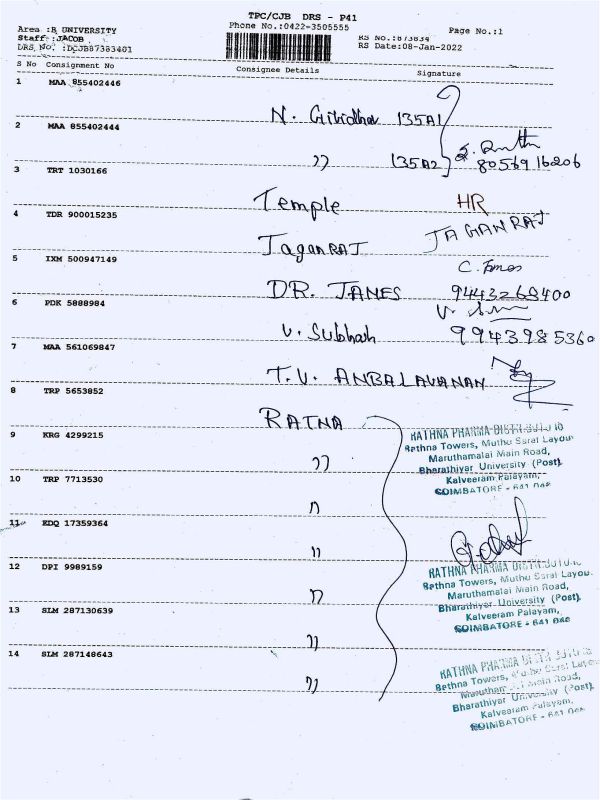 TPC/CJB DRS - P41
Area :B UNIVERSITY
Phone No.:0422-3505555
Page No.:1
Staff :JACOB
RS No.:873834
DRS No. :DCJB87383401
RS Date:08-Jan-2022
S No Consignment No Consignee Details Signature
1 MAA 855402446
N. Giridhar 135A1
2 MAA 855402444
" 135A2
8056916206
3 TRT 1030166
Temple HR
4 TDR 900015235
JAGANRAJ JAGANRAJ
5 IXM 500947149
DR. JAMES 9443268400
6 PDK 5888984
V. Subbiah 9943985360
7 MAA 561069847
T.V. ANBALAVANAN
8 TRP 5653852
RATNA
9 KRG 4299215
"
10 TRP 7713530
"
11 EDQ 17359364
"
12 DPI 9989159
"
13 SLM 287130639
"
14 SLM 287148643
"
RATHNA PHARMA DISTRIBUTORS
Rathna Towers, Muthu Saral Layou
Maruthamalai Main Road,
Bharathiyar University (Post),
Kalveeram Palayam,
COIMBATORE - 641 046
RATHNA PHARMA DISTRIBUTORS
Rathna Towers, Muthu Saral Layou
Maruthamalai Main Road,
Bharathiyar University (Post),
Kalveeram Palayam,
COIMBATORE - 641 046
RATHNA PHARMA DISTRIBUTORS
Rathna Towers, Muthu Saral Layou
Maruthamalai Main Road,
Bharathiyar University (Post),
Kalveeram Palayam,
COIMBATORE - 641 046